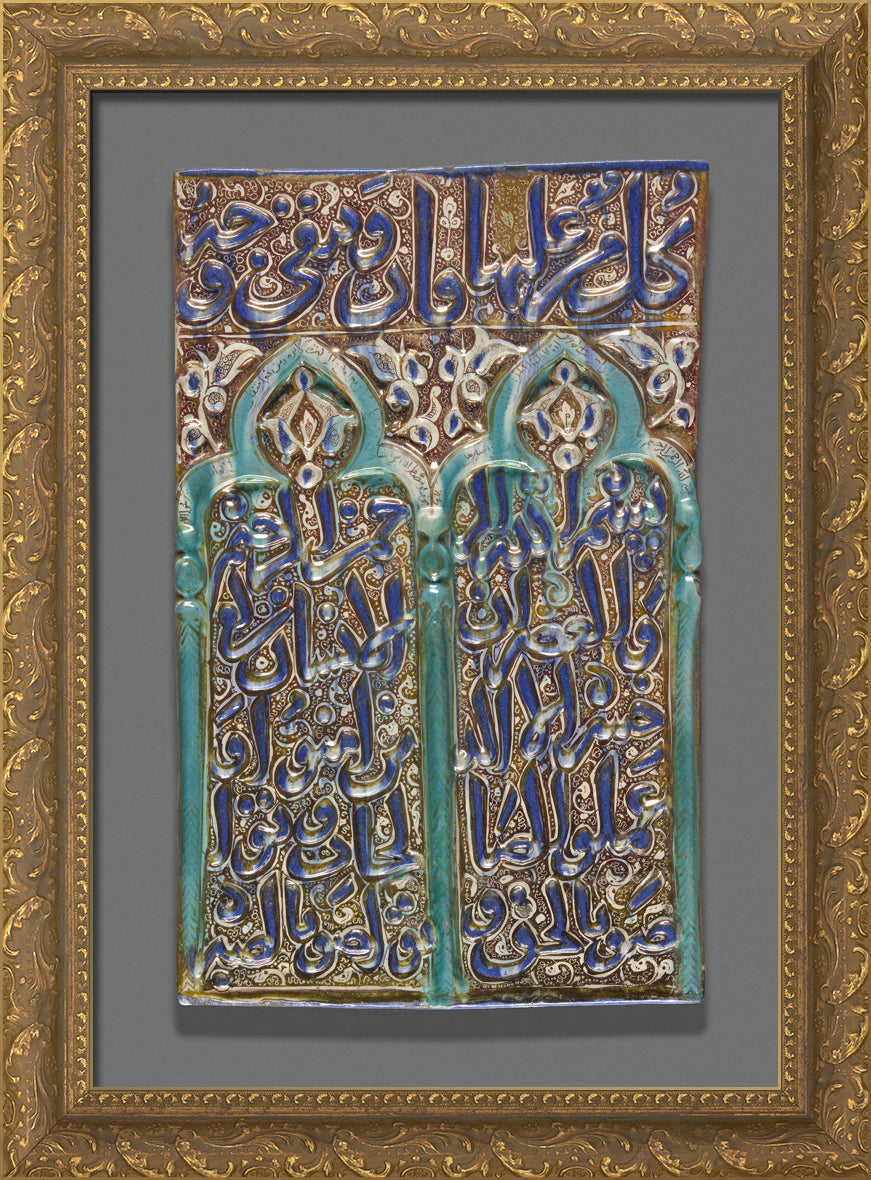 كل من عليها فان ويبقى وجه
بسم الله الرحمن الرحيم
والعصر ان الانسان لفى
خسر الا الذين امنوا و
عملوا الصالحات وتوا
صوا بالحق وتواصوا بالصبر